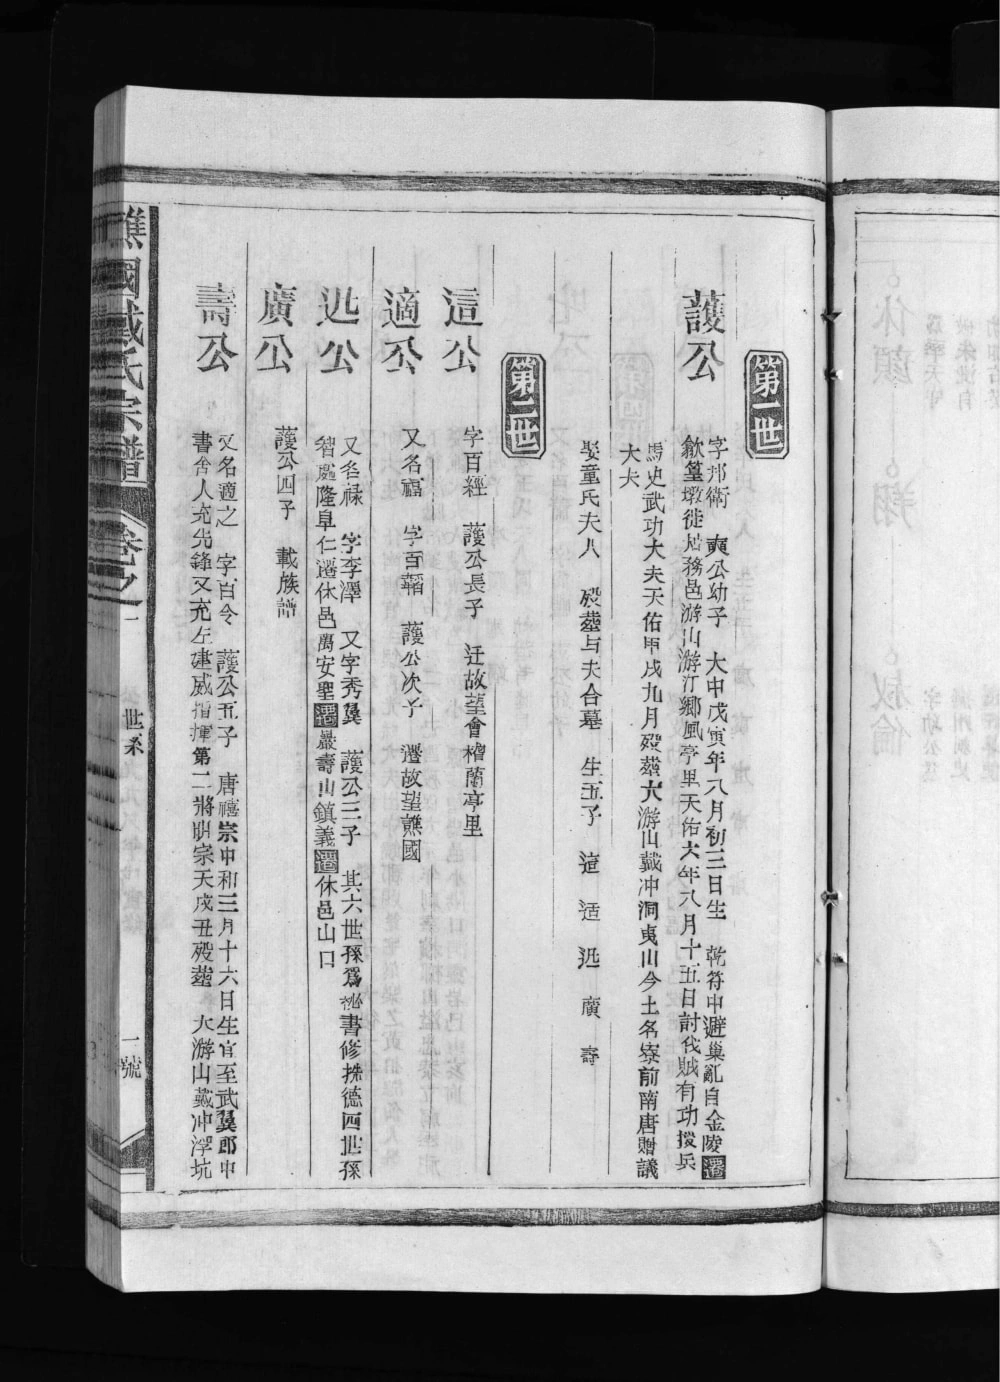 第一世
護公
字邦衛 奭公幼子 大中戊寅年八月初三日生 乾符中避巢亂自金陵遷
歙篁墩徙居務邑游山游汀鄉風亭里天佑六年八月十五日討伐賊有功授兵
馬史武功大夫天佑甲戌九月殁葬大游山戴冲洞夷山今土名寮前南唐贈議
大夫
娶童氏夫人 殁葬与夫合墓 生五子 這 适 迯 廣 壽
第二世
這公
字百經 護公長子 迁故望會稽蘭亭里
適公
又名禧 字百韜 護公次子 遷故望譙國
迯公
又名祿 字李澤 又字秀翼 護公三子 其六世孫爲祕書修撰德四世孫
智處隆阜仁遷休邑萬安聖遷巖壽山鎮義遷休邑山口
廣公
護公四子 載族譜
壽公
又名適之 字百令 護公五子 唐禧宗中和三月十六日生官至武翼郎中
書舍人充先鋒又充左建威指揮第二將明宗天成丑殁葬 大游山戴冲浮坑
譙國戴氏宗譜 卷之一 世系 一號
休顏
翔
叔倫